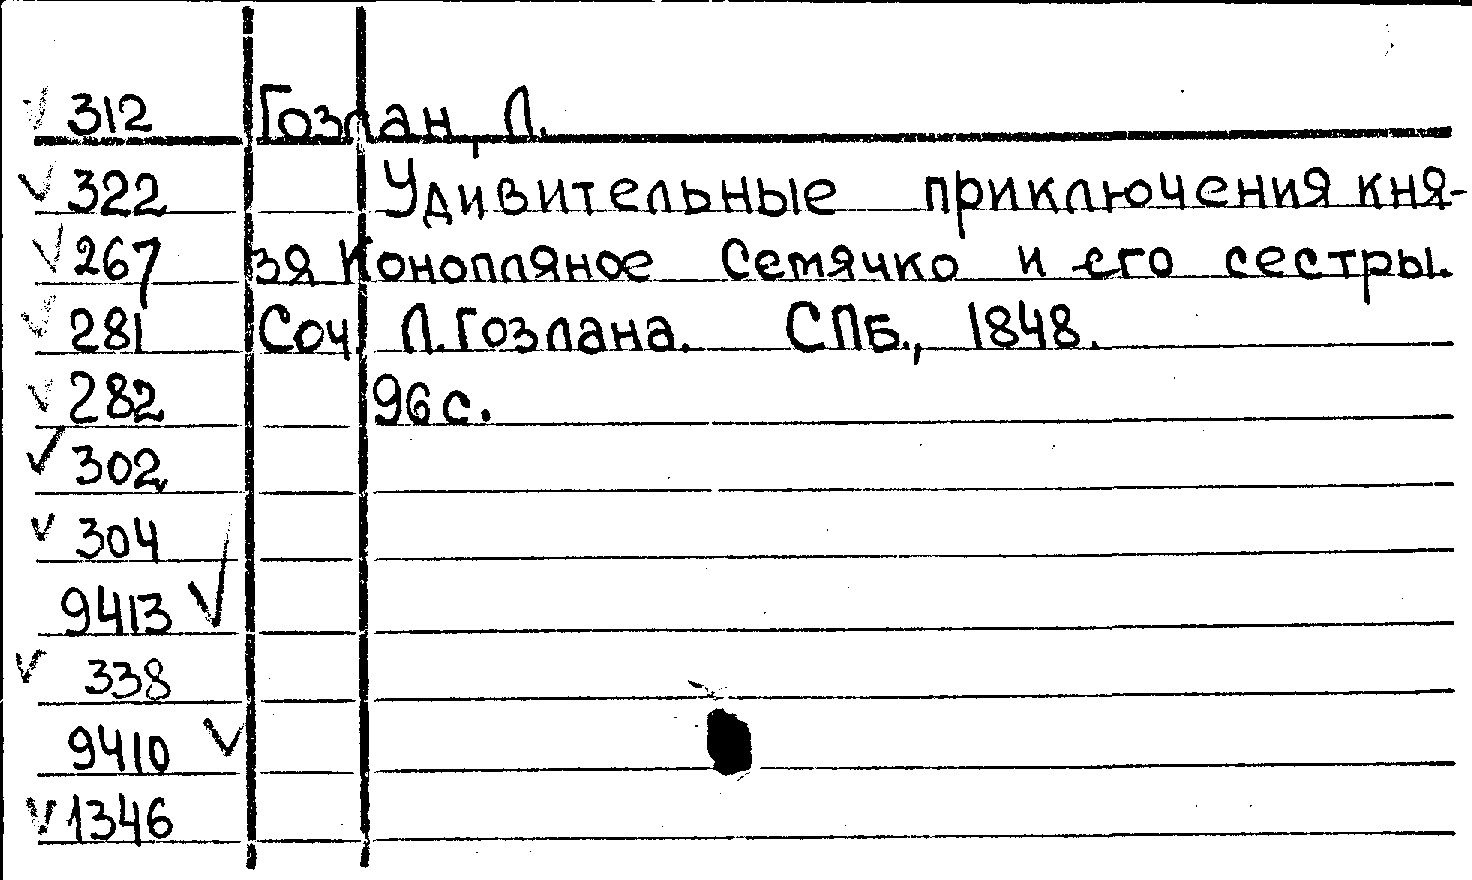 312 Гозлан, Л.
322 Удивительные приключения кня-
267 зя Конопляное Семячко и его сестры.
281 Соч Л. Гозлана. СПБ., 1848.
282 96 с.
302
304
9413
338
9410
1346